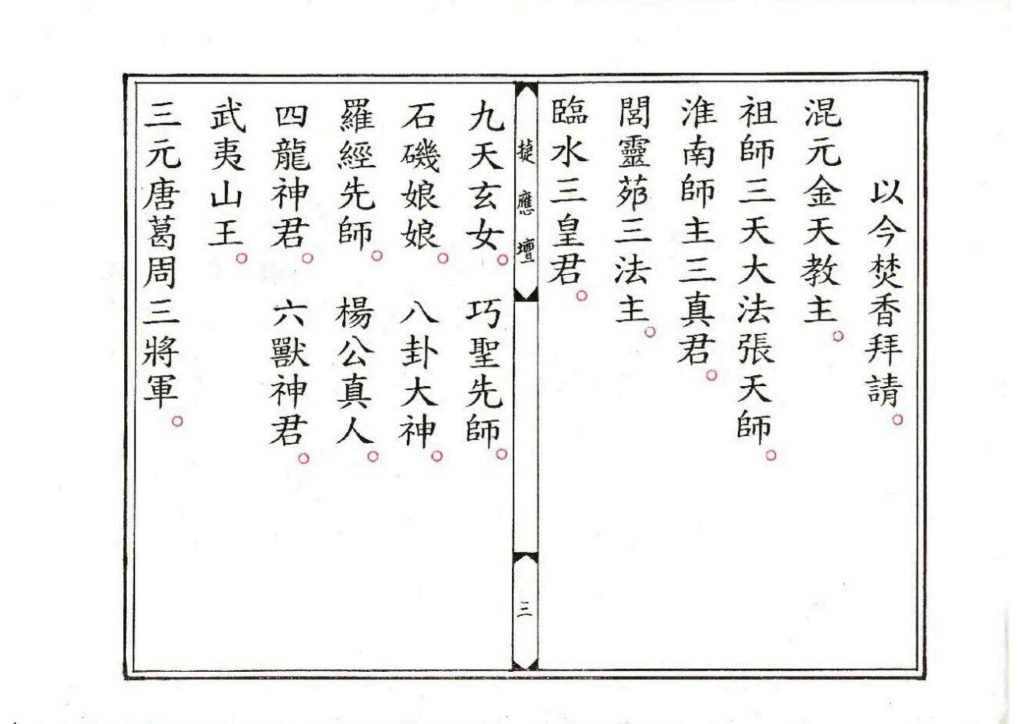 以今焚香拜請。
混元金天教主。
祖師三天大法張天師。
淮南師主三真君。
閭靈茆三法主。
臨水三皇君。
捷應壇
三
九天玄女。 巧聖先師。
石磯娘娘。 八卦大神。
羅經先師。 楊公真人。
四龍神君。 六獸神君。
武夷山王。
三元唐葛周三將軍。